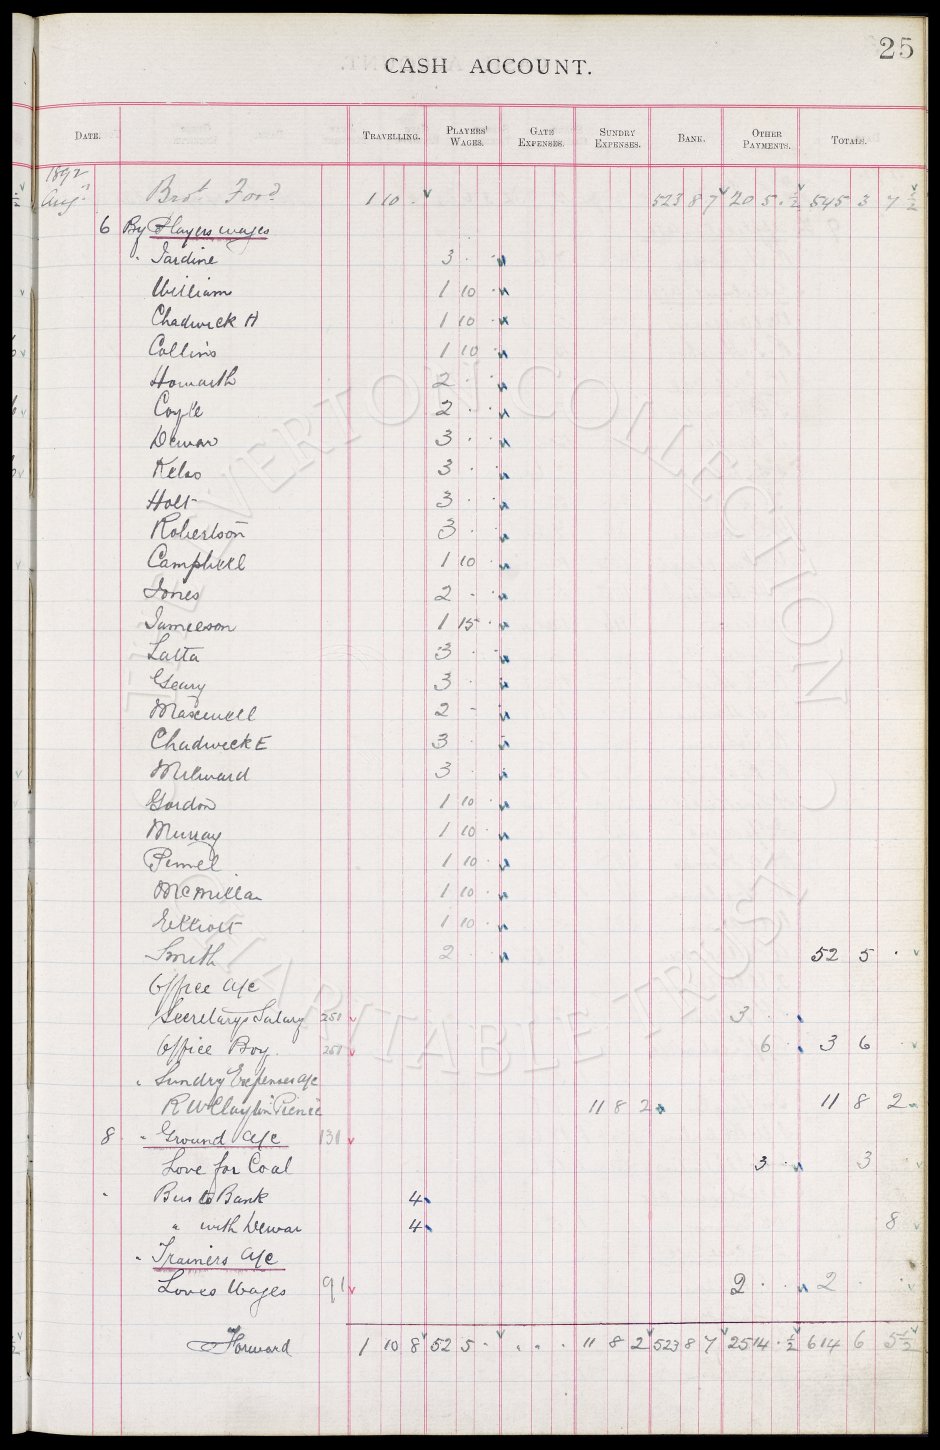 25
CASH ACCOUNT.
DATE. TRAVELLING. PLAYERS' WAGES. GATE EXPENSES. SUNDRY EXPENSES. BANK. OTHER PAYMENTS. TOTALS.
1892
Augt Brot Forwd 1 10 . 523 8 7 20 5 . ½ 545 3 7 ½
6 By Players wages
" Jardine 3 . .
William 1 10 .
Chadwick A 1 10 .
Collins 1 10 .
Howarth 2 . .
Coyle 2 . .
Dewar 3 . .
Kelso 3 . .
Holt 3 . .
Robertson 3 . .
Campbell 1 10 .
Jones 2 - .
Jamieson 1 15 .
Latta 3 . .
Geary 3 .
Maxwell 2 -
Chadwick E 3 .
Milward 3 .
Gordon 1 10 .
Murray 1 10 .
Pinnel 1 10 .
McMillan 1 10 .
Elliott 1 10 .
Smith 2 . 52 5 .
Office a/c
Secretarys Salary 251 3 . .
Office Boy. 251 6 . 3 6 .
" Sundry Expenses a/c
R W Claytin Picnic 11 8 2 11 8 2
8 " Ground a/c 131
Love for Coal 3 . 3 .
" Bus to Bank 4
" with Dewar 4 8
" Trainers a/c
Loves Wages 91 2 . . 2 . .
Forward 1 10 8 52 5 . . . . 11 8 2 523 8 7 25 14 . ½ 614 6 5 ½
THE EVERTON COLLECTION CHARITABLE TRUST